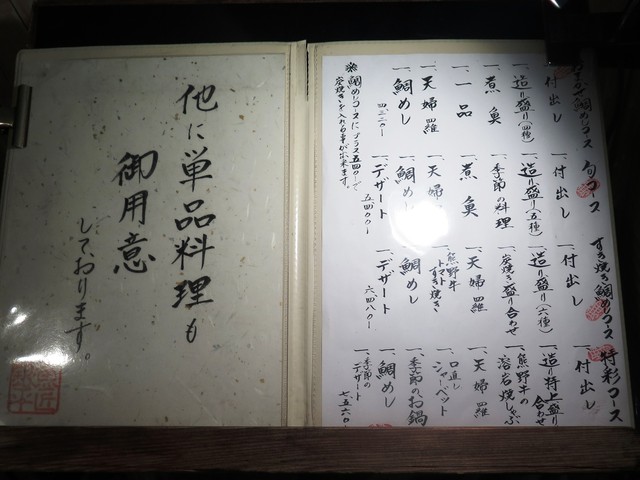 鯛めしコース
一、付出し
一、造り盛り(四種)
一、煮魚
一、一品
一、天婦羅
一、鯛めし
四、三二〇〇
※鯛めしコースにプラス五四〇〇で
炭焼きを入れる事が出来ます。
旬コース
一、付出し
一、造り盛り(五種)
一、季節の料理
一、煮魚
一、天婦羅
一、鯛めし
一、デザート
五、四〇〇〇
すき焼き鯛めしコース
一、付出し
一、造り盛り(六種)
一、炭焼き盛り合わせ
一、天婦羅
一、熊野牛
トマトすき焼き
一、鯛めし
一、デザート
六、四八〇〇
特彩コース
一、付出し
一、造り特上盛り合わせ
一、熊野牛の
溶岩焼しゃぶ
一、天婦羅
一、口直し
シャーベット
一、季節のお鍋
一、鯛めし
一、季節の
デザート
七、五六〇〇
他に単品料理も
御用意
しております。